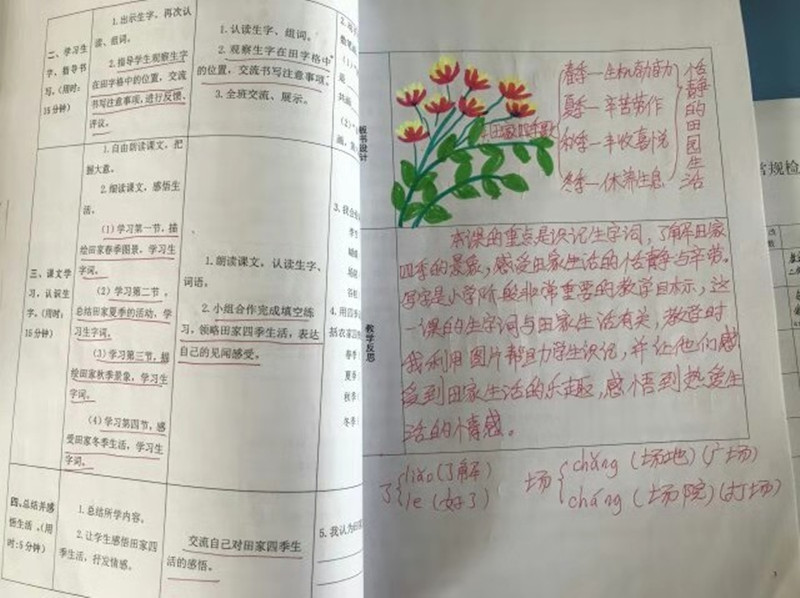 二、学习生
字,指导书
写。(用时:
15分钟)
1.出示生字,再次认
读、组词。
2.指导学生观察生字
在田字格中的位置,交流
书写注意事项,进行反馈、
评议。
1.认读生字、组词。
2.观察生字在田字格中
的位置,交流书写注意事项。
3.全班交流、展示。
三、课文学
习,认识生
字。(用时:
15分钟)
1.自由朗读课文,把
握大意。
2.细读课文,感悟生
活。
(1)学习第一节,描
绘田家春季图景,学习生
字词。
(2)学习第二节,
总结田家夏季的活动,学
习生字词。
(3)学习第三节,描
绘田家秋季景象,学习生
字词。
(4)学习第四节,感
受田家冬季生活,学习生
字词。
1.朗读课文,认读生字、
词语。
2.小组合作完成填空练
习,领略田家四季生活,表达
自己的见闻感受。
3.我会
4.用四
括农家四
春季
夏季
秋季
冬季
四、总结并感
悟生活。(用
时:5分钟)
1.总结所学内容。
2.让学生感悟田家四
季生活,抒发情感。
交流自己对田家四季生
活的感悟。
5.我认为
板书设计
田家四季歌
春季—生机勃勃
夏季—辛苦劳作
秋季—丰收喜悦
冬季—休养生息
恬静的田园生活
教学反思
本课的重点是识记生字词,了解田家
四季的景象,感受田家生活的恬静与辛劳。
写字是小学阶段非常重要的教学目标,这
一课的生字词与田家生活有关,教学时
我利用图片帮助学生识记,并让他们感
受到田家生活的乐趣,感悟到热爱生
活的情感。
了 liǎo(了解)
le(好了)
场 chǎng(场地)(广场)
cháng(场院)(打场)
常规检